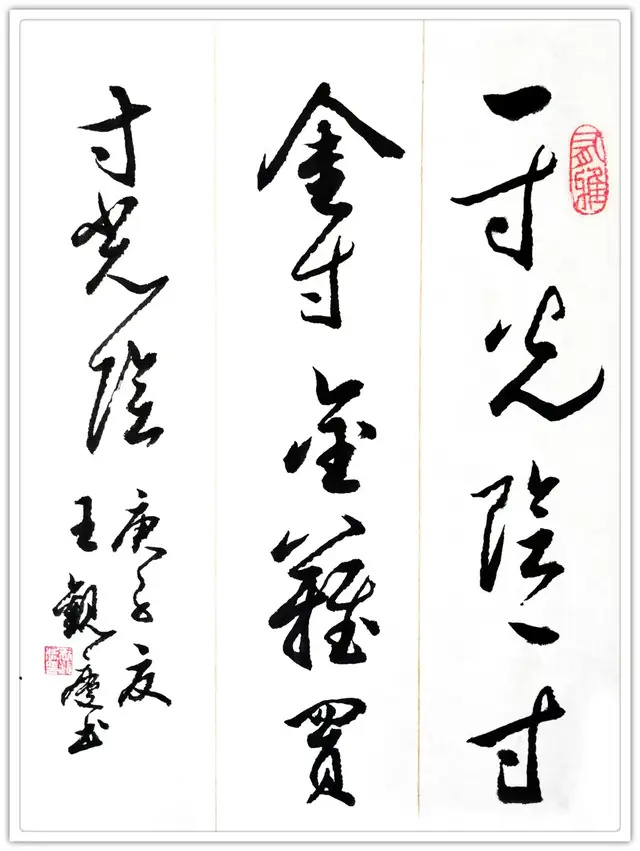 一寸光陰一寸
金寸金難買
寸光陰
庚子夏
王觀慶書